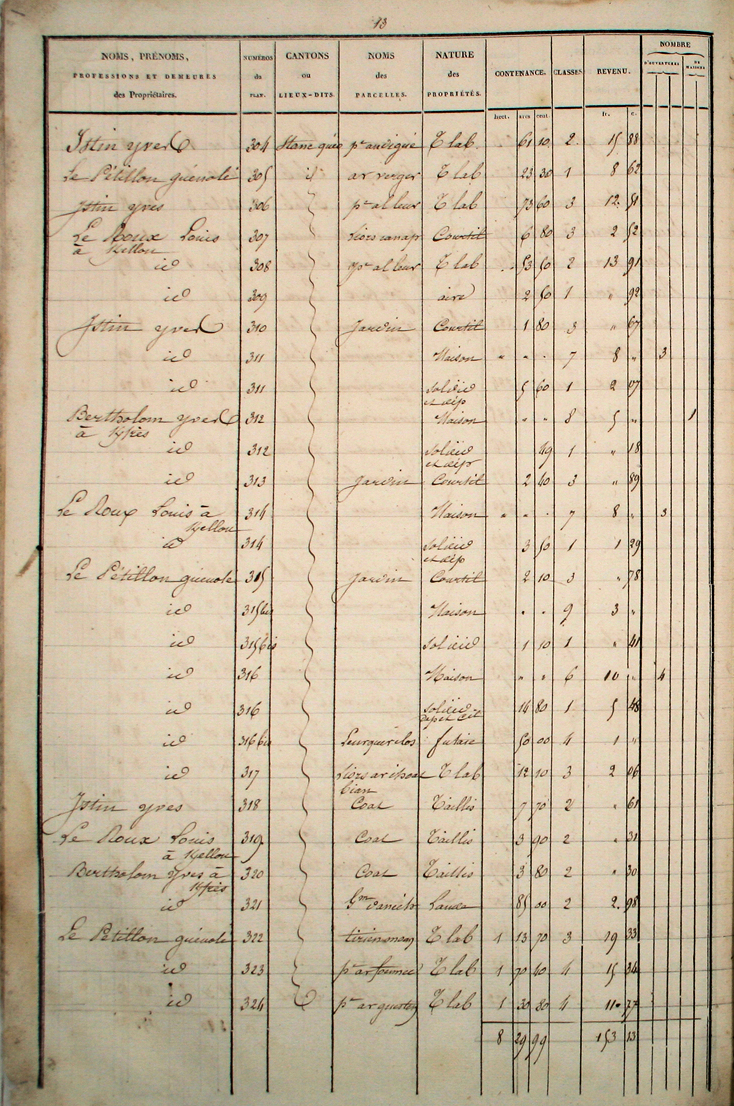 13
NOMS, PRÉNOMS, PROFESSIONS ET DEMEURES des Propriétaires. NUMÉROS du PLAN. CANTONS ou LIEUX-DITS. NOMS des PARCELLES. NATURE des PROPRIÉTÉS. CONTENANCE. CLASSES. REVENU. NOMBRE D'OUVERTURES DE MAISONS
hect. ares cent. fr. c.
Istin yves 304 Stanc quéo pc andigué T lab 61 10 2 15 88
Le Pétillon guénolé 305 id ar verger T lab 23 30 1 8 62
Istin yves 306 pc al leur T lab 73 60 3 12 51
Le Roux Louis 307 Liors canap Courtil 6 80 3 2 52
à Kellou
id 308 pc al leur T lab 53 50 2 13 91
id 309 aire 2 50 1 " 92
Istin yves 310 Jardin Courtil 1 80 3 " 67
id 311 Maison " " " 7 8 " 3
id 311 sol aire 5 60 1 2 07
et dép
Bertholom yves 312 Maison " " 8 5 " 1
à
id 312 sol aire 49 1 " 18
et dép
id 313 Jardin Courtil 2 40 3 " 89
Le Roux Louis à 314 Maison " " " 7 8 " 3
Kellou
id 314 sol aire 3 50 1 1 29
et dép
Le Pétillon guénolé 315 Jardin Courtil 2 10 3 " 78
id 315 bis Maison " " 9 3 "
id 315 bis sol aire 1 10 1 " 41
id 316 Maison " " 6 10 " 4
id 316 sol aire 14 80 1 5 48
id 316 bis Leurguérilos futaie 50 00 4 1 "
id 317 Liors T lab 12 10 3 2 06
bian
Istin yves 318 Coat Taillis 7 70 2 " 61
Le Roux Louis 319 Coat Taillis 3 90 2 " 31
à Kellou
Bertholom Yves à 320 Coat Taillis 3 80 2 " 30
id 321 Lande 85 00 2 2 98
Le Pétillon guénolé 322 T lab 1 13 70 3 19 33
id 323 pc ar fournic T lab 1 70 40 4 15 34
id 324 T lab 1 30 80 4 11 77
8 29 99 153 13